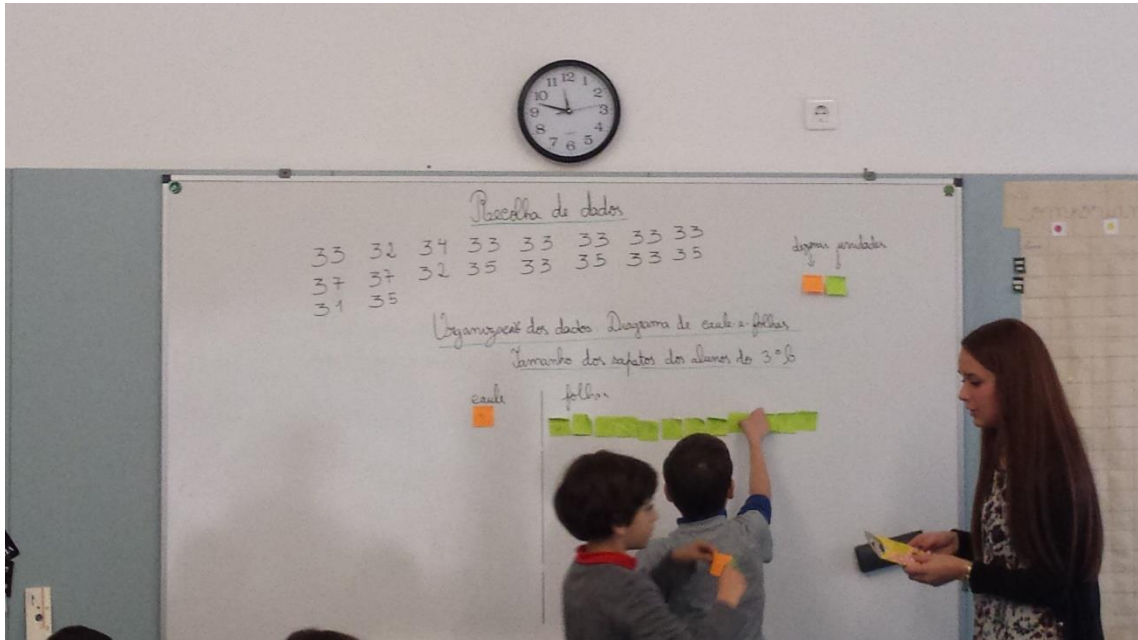 11 12 1
10 2
9 3
8 4
7 6 5
Recolha de dados
33 32 34 33 33 33 33 33
37 37 32 35 33 35 33 35
31 35
dezenas unidades
Organização dos dados Diagrama de caule-e-folhas
Tamanho dos sapatos dos alunos do 3º b
caule folhas